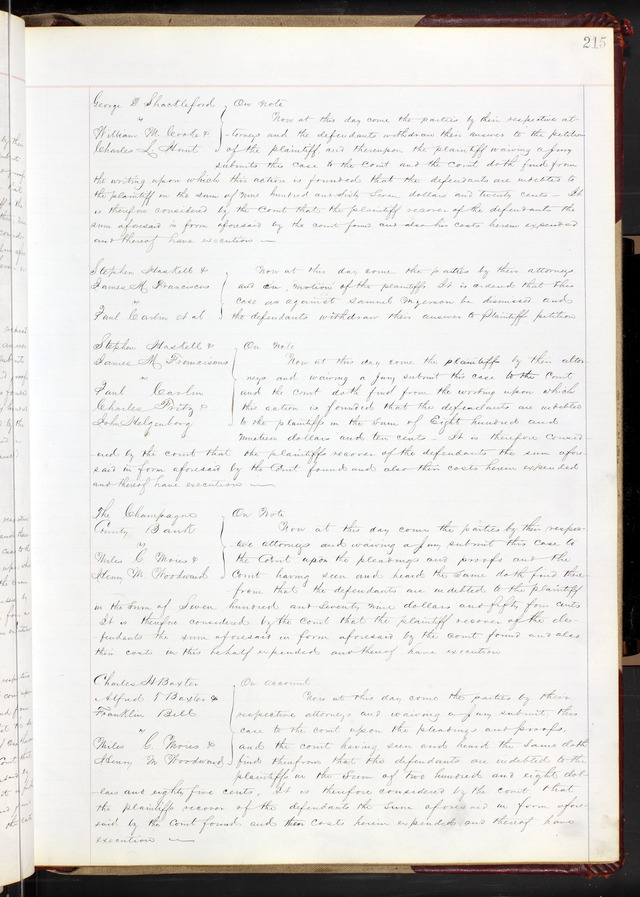 215
George D Shackleford } On Note
vs Now at this day come the parties by their respective at-
William M. Cooke & -torneys and the defendants withdraw their answer to the petition
Charles L Hunt of the plaintiff and thereupon the plaintiff waiving a Jury
submits this case to the Court and the Court doth find from
the writing upon which this action is founded that the defendants are indebted to
the plaintiff in the sum of Nine hundred and Sixty Seven dollars and twenty cents. It
is therefore considered by the Court that the plaintiff recover of the defendants the
sum aforesaid in form aforesaid by the Court found and also his costs herein expended
and thereof have execution
Stephen Haskell & } Now at this day come the parties by their attorneys
James M Franciscus and on motion of the plaintiffs It is ordered that this
vs case as against Samuel be dismissed and
Paul Carlin et al the defendants withdraw their answer to Plaintiffs petition
Stephen Haskell & } On Note
James M Franciscus Now at this day come the plaintiffs by their attor
vs neys and waiving a Jury submit this case to the Court
Paul Carlin and the Court doth find from the writing upon which
Charles Fritz & this action is founded that the defendants are indebted
John Helgenberg to the plaintiffs in the Sum of Eight hundred and
Nineteen dollars and ten cents. It is therefore consid-
ered by the court that the plaintiffs recover of the defendants the sum afore-
said in form aforesaid by the Court found and also their costs herein expended
and thereof have execution
The Champagne } On Note
County Bank Now at this day come the parties by their respec-
vs tive attorneys and waiving a Jury submit this case to
Miles C Mores & the Court upon the pleadings and proofs and the
Henry M Woodward Court having seen and heard the same doth find there-
from that the defendants are indebted to the plaintiff
in the Sum of Seven hundred and seventy nine dollars and fifty four cents
It is therefore considered by the Court that the plaintiff recover of the de-
fendants the sum aforesaid in form aforesaid by the court found and also
their costs in this behalf expended and thereof have execution
Charles H Baxter } On account
Alfred T Baxter & Now at this day come the parties by their
Franklin Bell respective attorneys and waiving a Jury submit this
vs case to the court upon the pleadings and proofs,
Miles C. Mores & and the court having seen and heard the same doth
Henry M Woodward find therefrom that the defendants are indebted to the
plaintiffs in the Sum of two hundred and eight dol-
-lars and eighty five cents, It is therefore considered by the court that
the plaintiffs recover of the defendants the Sum aforesaid in form afore-
said by the Court found and their costs herein expended and thereof have
execution